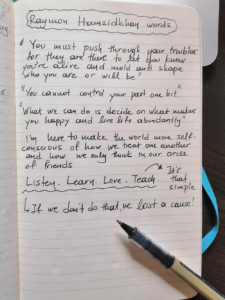 Raymon Hamzidkhay words
" You must push through your troubles
for they are there to let you know
you're alive and mold and shape
who you are or will be "
" You cannot control your past one bit."
"What we can do is decide on what makes
you happy and live life abundantly"
I'm here to make the world more self-
conscious of how we treat one another
and how we only think in our circle
of friends
Listen. Learn. Love. Teach → It's
that
simple
↳ If we don't do that, we lost a cause!